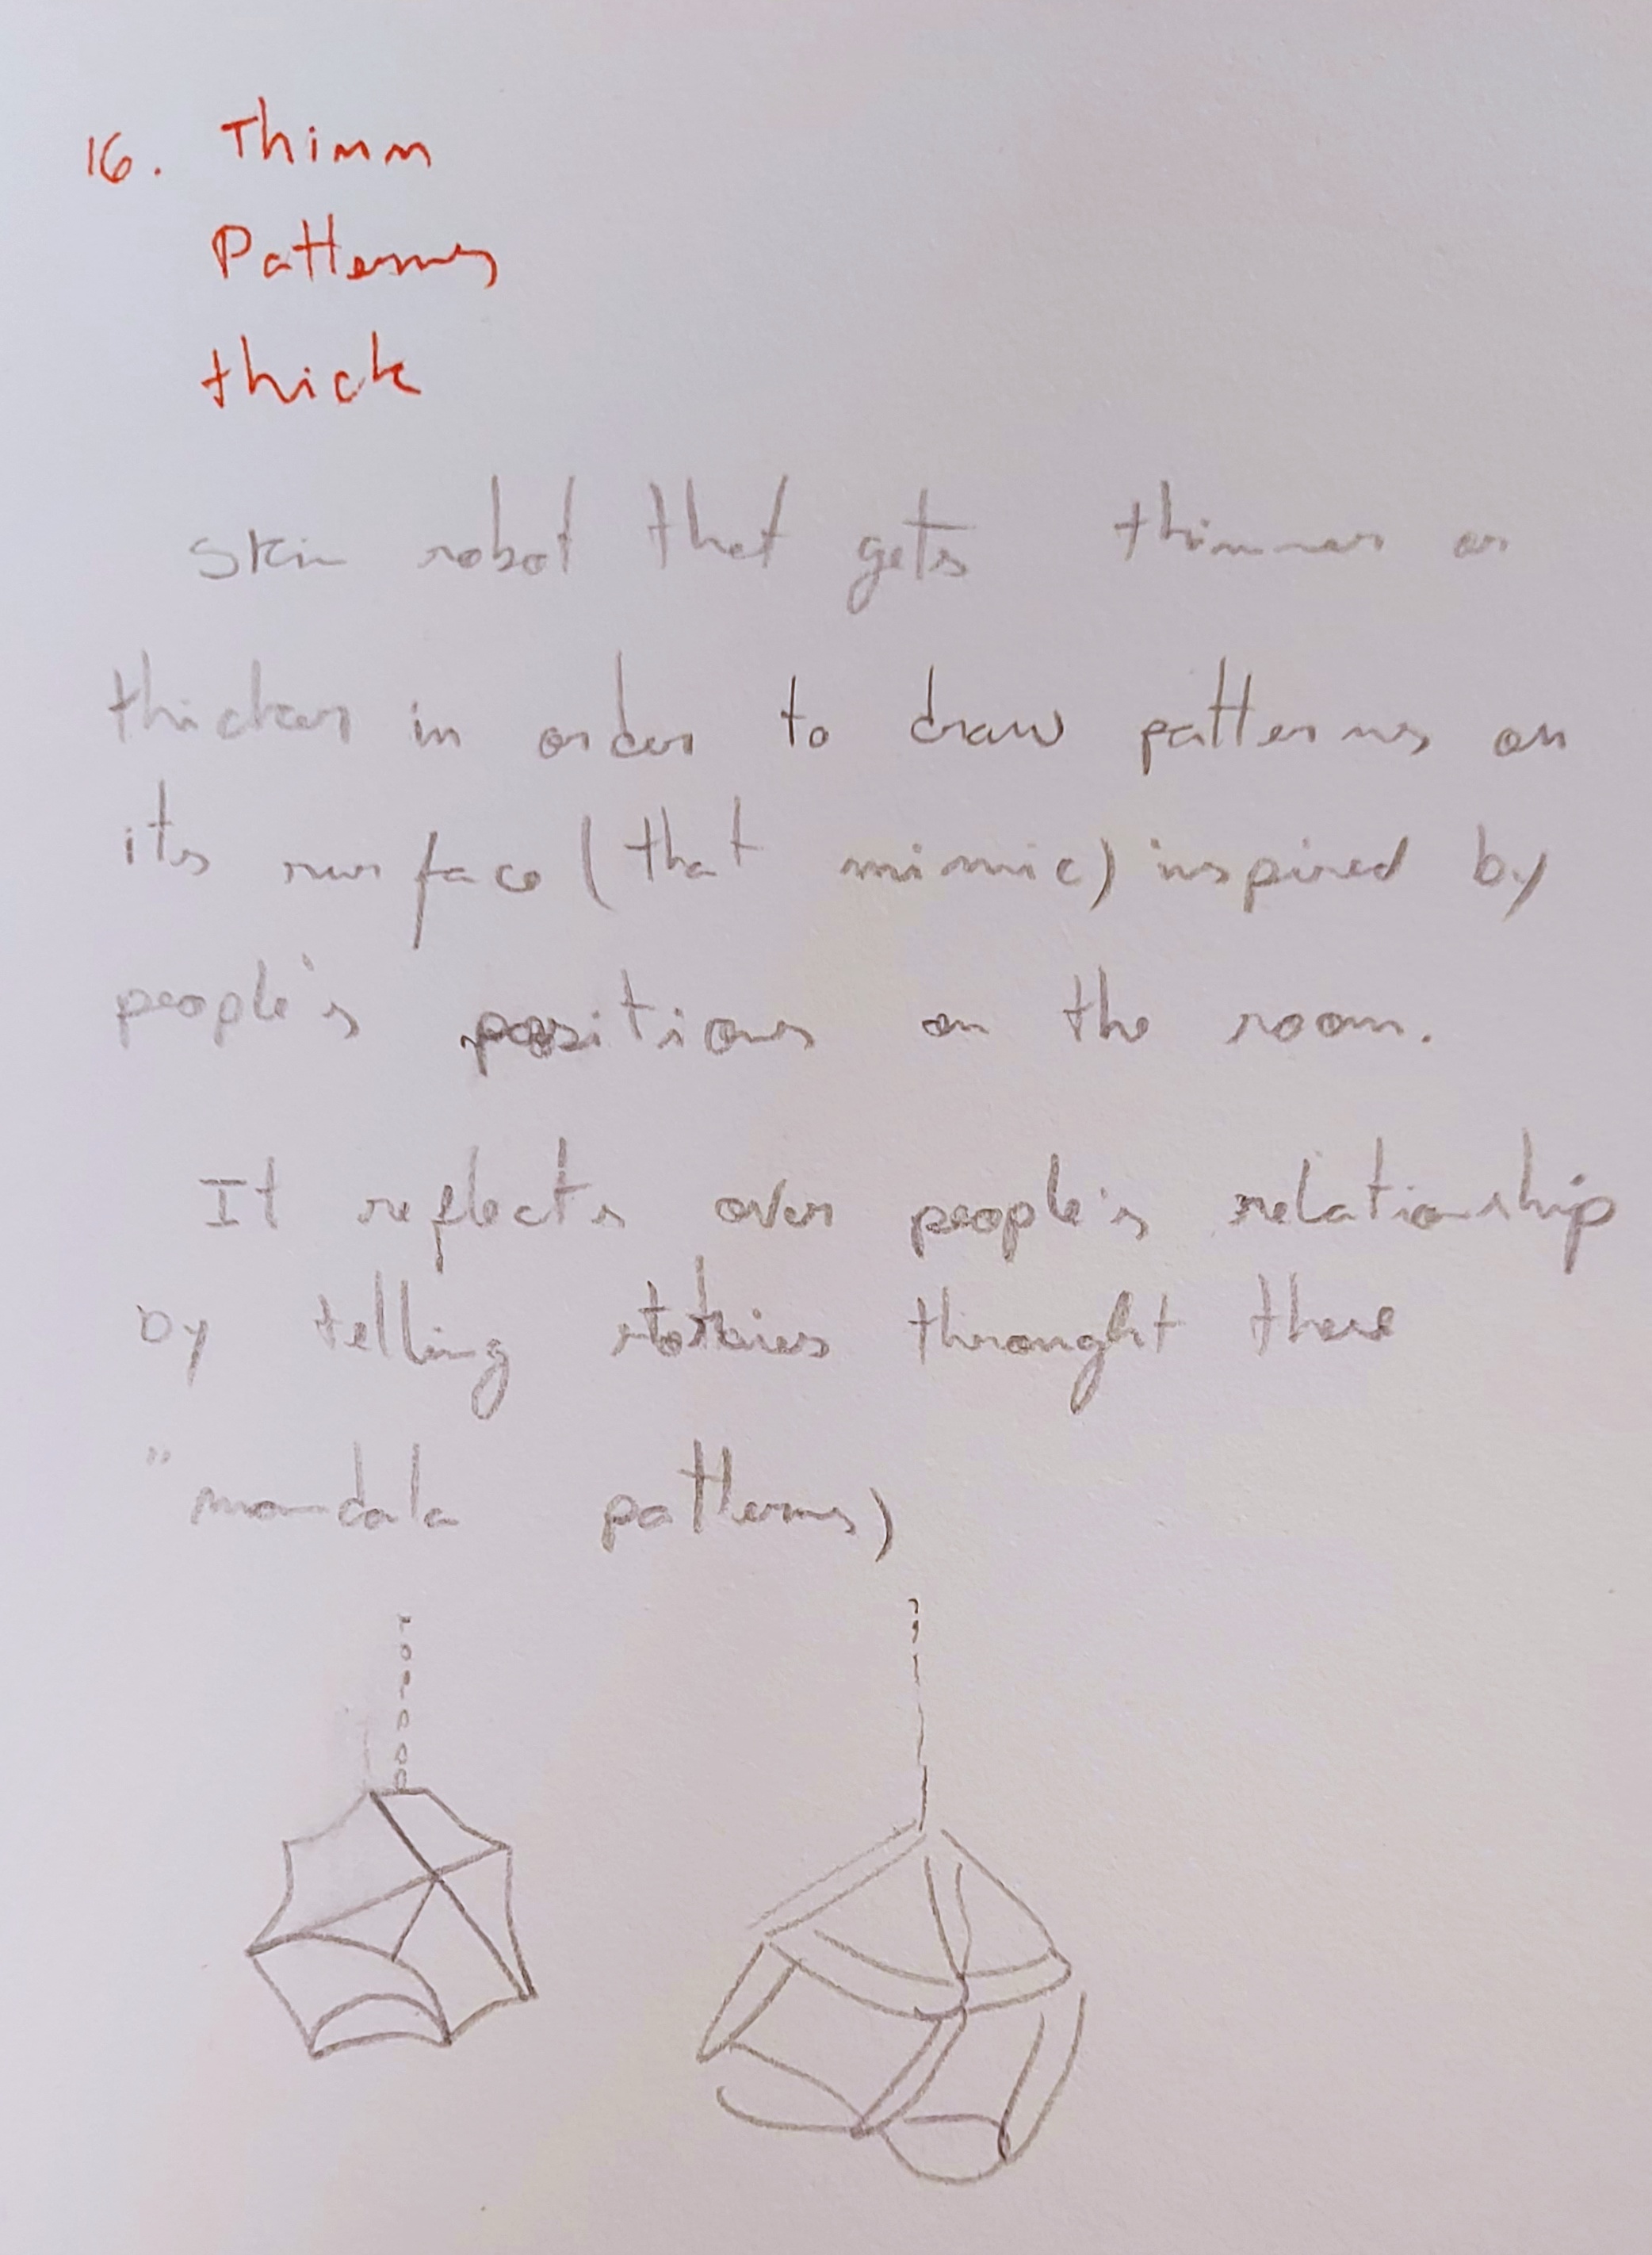 16. Thinn
Patterns
thick
Skin robot that gets thinner or
thicker in order to draw patterns on
its surface (that mimic) inspired by
people's positions on the room.
It reflects over people's relationship
by telling stories throught these
"mandala patterns)